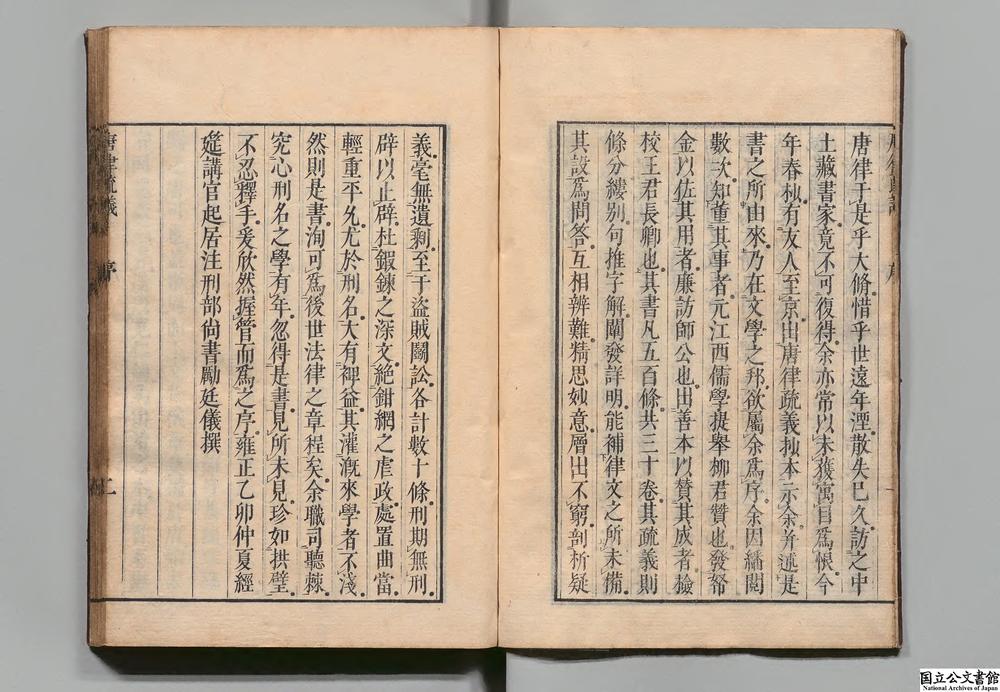 唐律于是乎大脩惜乎世遠年湮散失已久訪之中
土藏書家竟不可復得余亦常以未獲寓目為恨今
年春杪有友人至京出唐律疏義抄本示余并述是
書之所由來乃在文學之邦欲屬余為序余因繙閱
數次知董其事者元江西儒學提舉柳君贇也發帑
金以佐其用者廉訪師公也出善本以贊其成者檢
校王君長卿也其書凡五百條共三十卷其疏義則
條分縷别句推字解闡發詳明能補律文之所未備
其設為問答互相辨難精思妙意層出不窮剖析疑
義毫無遺剩至于盜賊鬬訟各計數十條刑期無刑
辟以止辟杜鍛鍊之深文絶鉗網之虐政處置曲當
輕重平允尤於刑名大有裨益其灌溉來學者不淺
然則是書洵可為後世法律之章程矣余職司聽棘
究心刑名之學有年忽得是書見所未見珍如拱璧
不忍釋手爰欣然握管而為之序雍正乙卯仲夏經
筵講官起居注刑部尚書勵廷儀撰
唐律疏義 序 二
国立公文書館
National Archives of Japan